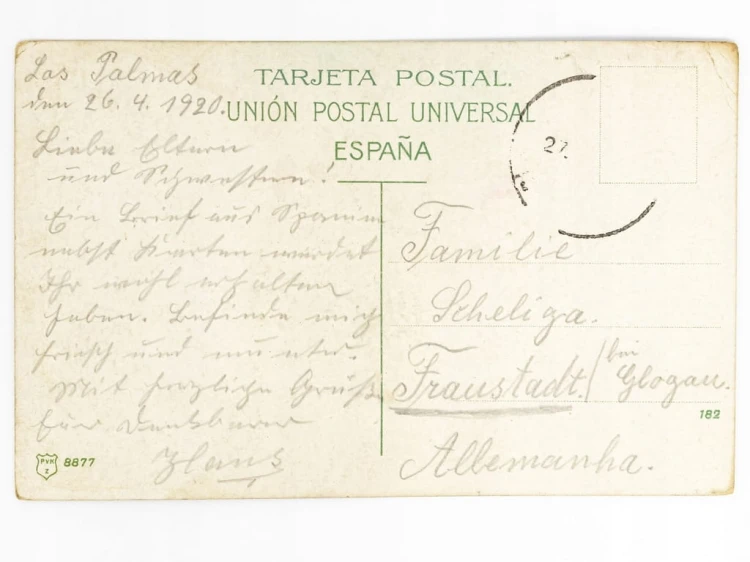 TARJETA POSTAL.
UNIÓN POSTAL UNIVERSAL
ESPAÑA
Las Palmas
den 26. 4. 1920.
Liebe Eltern
und Schwestern!
Ein Brief aus Spanien
nebst Karten werdet
Ihr wohl erhalten
haben. Befinde mich
frisch und munter.
Mit herzliche Grüße
Euer dankbarer
Hans
27.
Familie
Scheliga.
Fraustadt. / bei
Glogau.
Allemanha.
182
PVK
Z
8877